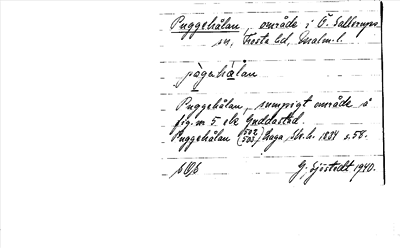 Puggehålan, område i Ö. Sallerups
sn, Frosta hd, Malm. l.
pògəhàlan
Puggehålan, sumpigt område å
fig. nr 5. ekl Gudda
Puggehålan (502 503) Haga, Sk. h. 1834 s. 58.
G. Sjöstedt 1940.